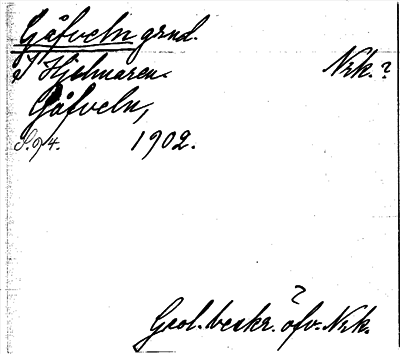 Gåfveln grnd.
I Hjelmaren. Nrk.?
Gåfveln,
S. 94. 1902.
?
Geol. beskr. öfv. Nrk.